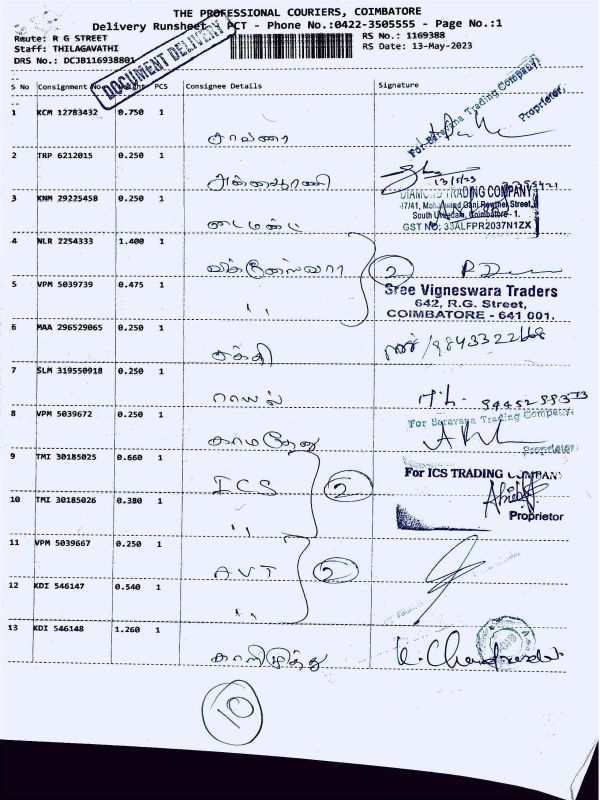 THE PROFESSIONAL COURIERS, COIMBATORE
Delivery Runsheet ACT - Phone No.:0422-3505555 - Page No.:1
Route: R G STREET
RS No.: 1169388
Staff: THILAGAVATHI
RS Date: 13-May-2023
DRS No.: DCJB116938801
DOCUMENT DELIVERY
S No Consignment No PCS Consignee Details Signature
1 KCM 12783432 0.750 1
For Saravana Trading Company,
Proprietor
2 TRP 6212015 0.250 1
அன்னபூரணி
13/5/23
3 KNM 29225458 0.250 1
டைமண்ட்
DIAMOND TRADING COMPANY
South Ukkadam, Coimbatore - 1.
GST NO: 33ALFPR2037N1ZX
4 NLR 2254333 1.400 1
விக்னேஸ்வரா
2
5 VPM 5039739 0.475 1
"
Sree Vigneswara Traders
642, R.G. Street,
COIMBATORE - 641 001.
6 MAA 296529065 0.250 1
சக்தி
7 SLM 319550918 0.250 1
ராயல்
8 VPM 5039672 0.250 1
காமதேனு
For Saravana Trading Company,
Proprietor
9 TMI 30185025 0.660 1
ICS
2
For ICS TRADING COMPANY
10 TMI 30185026 0.380 1
"
Proprietor
11 VPM 5039667 0.250 1
AVT
2
12 KDI 546147 0.540 1
"
13 KDI 546148 1.260 1
10